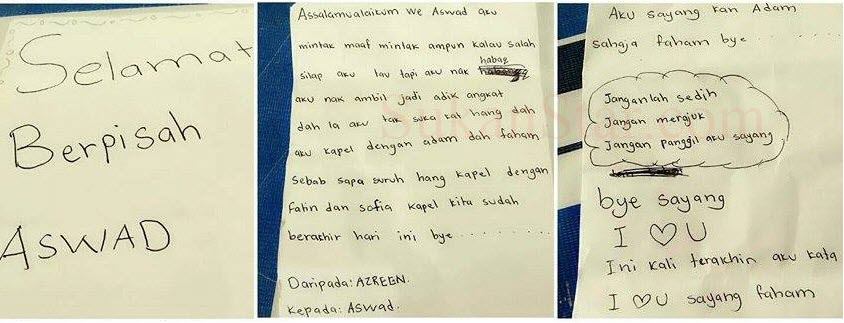 Selamat
Berpisah
ASWAD
Assalamualaikum We Aswad aku
mintak maaf mintak ampun kalau salah
silap aku lau tapi aku nak habaq
aku nak ambil jadi adik angkat
dah la aku tak suka kat hang dah
aku kapel dengan adam dah faham
sebab sapa suruh hang kapel dengan
Fatin dan sofia kapel kita sudah
berakhir hari ini bye..........
Daripada: AZREEN.
Kepada: Aswad.
Aku sayang kan Adam
sahaja faham bye..........
Janganlah sedih
Jangan merajuk
Jangan panggil aku sayang
bye sayang
I ♡ U
Ini kali terakhir aku kata
I ♡ U sayang faham